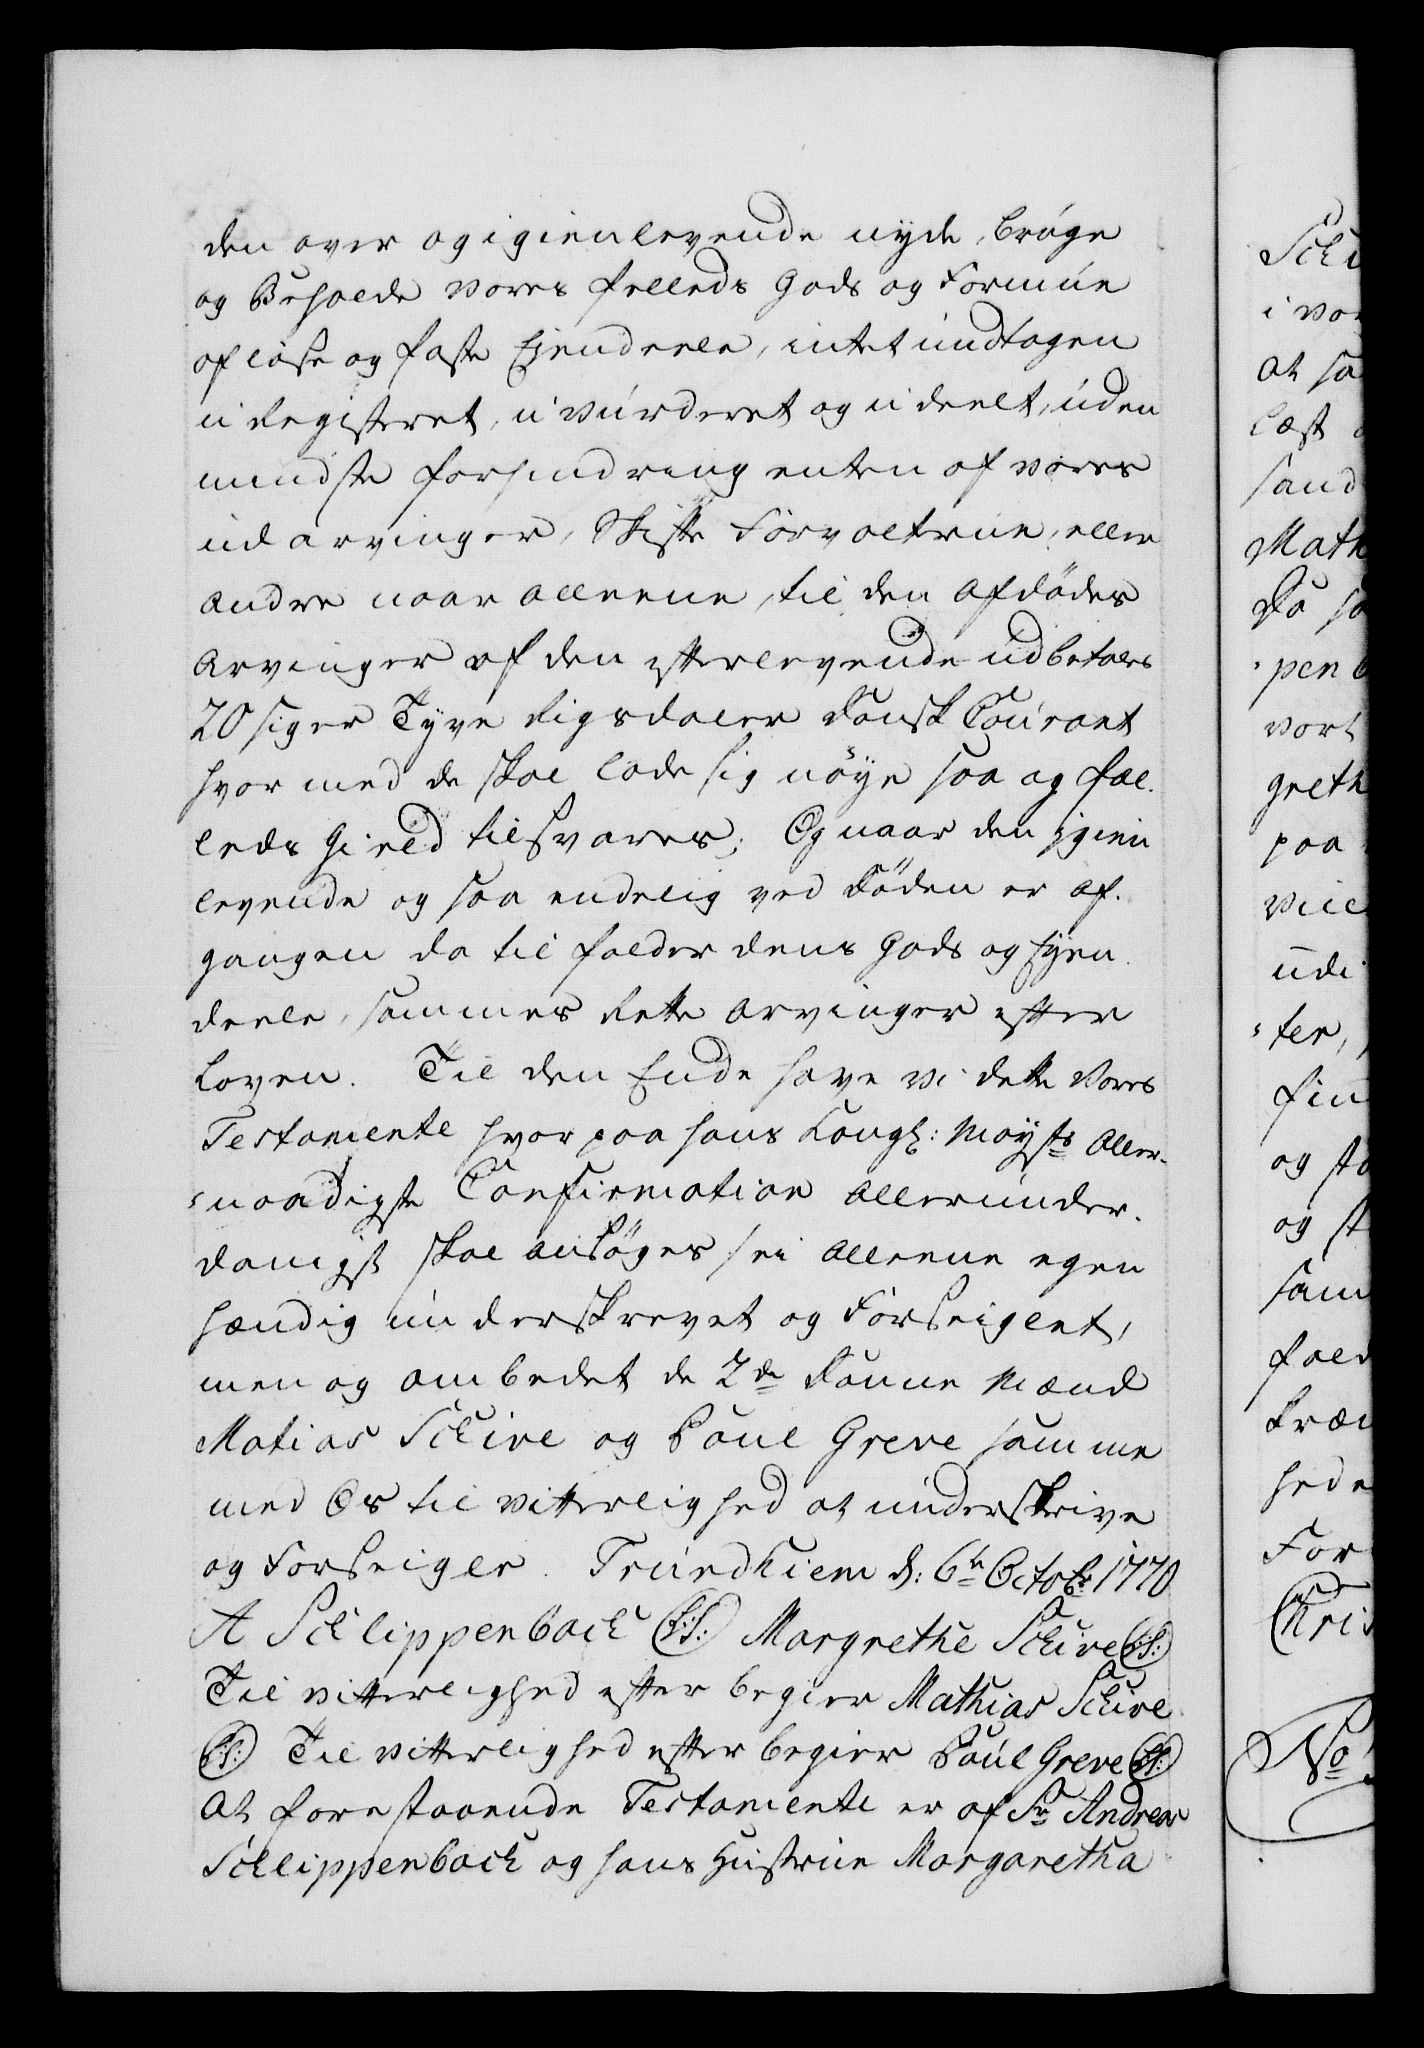 den over og igienlevende nyde, brúge
og Beholde vores felleds Gods og Formúe
af løse og faste Ejendeele, intet úndtagen
ú Registeret, ú vúrderet og ú deelt, úden
mindste forhindring enten af vores
úd arvinger, Skifte Forvaltere, eller
andre naar alleene, til den afdödes
Arvinger af den efterlevende údbetales
20 siger Tyve Rigsdaler Dansk Coúrant
hvor med de skal lade sig nöye saa og fæl-
leds Gield tilsvares; Og naar den igien
levende og saa endelig ved Döden er af-
gangen da til falder dens Gods og Eyen-
deele, sammes Rette Arvinger efter
Loven. Til den Ende have vi dette Vores
Testamente hvor paa hans Kongl: Mayts Aller-
naadigste Confirmation Allerúnder-
danigst skal ansöges, ei alleene egen
hændig únderskrevet og Forseiglet,
men og ombedet de 2de Danne Mænd
Matias Schive og Poul Greve samme
med Os til vitterlighed at únderskrive
og Forseigle. Trúndhiem d: 6te Octobr 1770
A Schlippenbach (L:S:) Margrethe Schive (L:S:)
Til vitterlighed efter begier Mathias Schive
(L:S:) Til vitterlighed efter begier Poúl Greve (L:S:)
At forestaaende Testamente er af Sr Andreas
Schlippenbach og hans Hústrúe Margaretha
Schi
i vor
at sa
læst
sand
Math
Da sa
pen b
vort
greth
paa
vil
údi
ter,
fin
og sta
og st
sam
fald
træn
hede
For
Chris
No